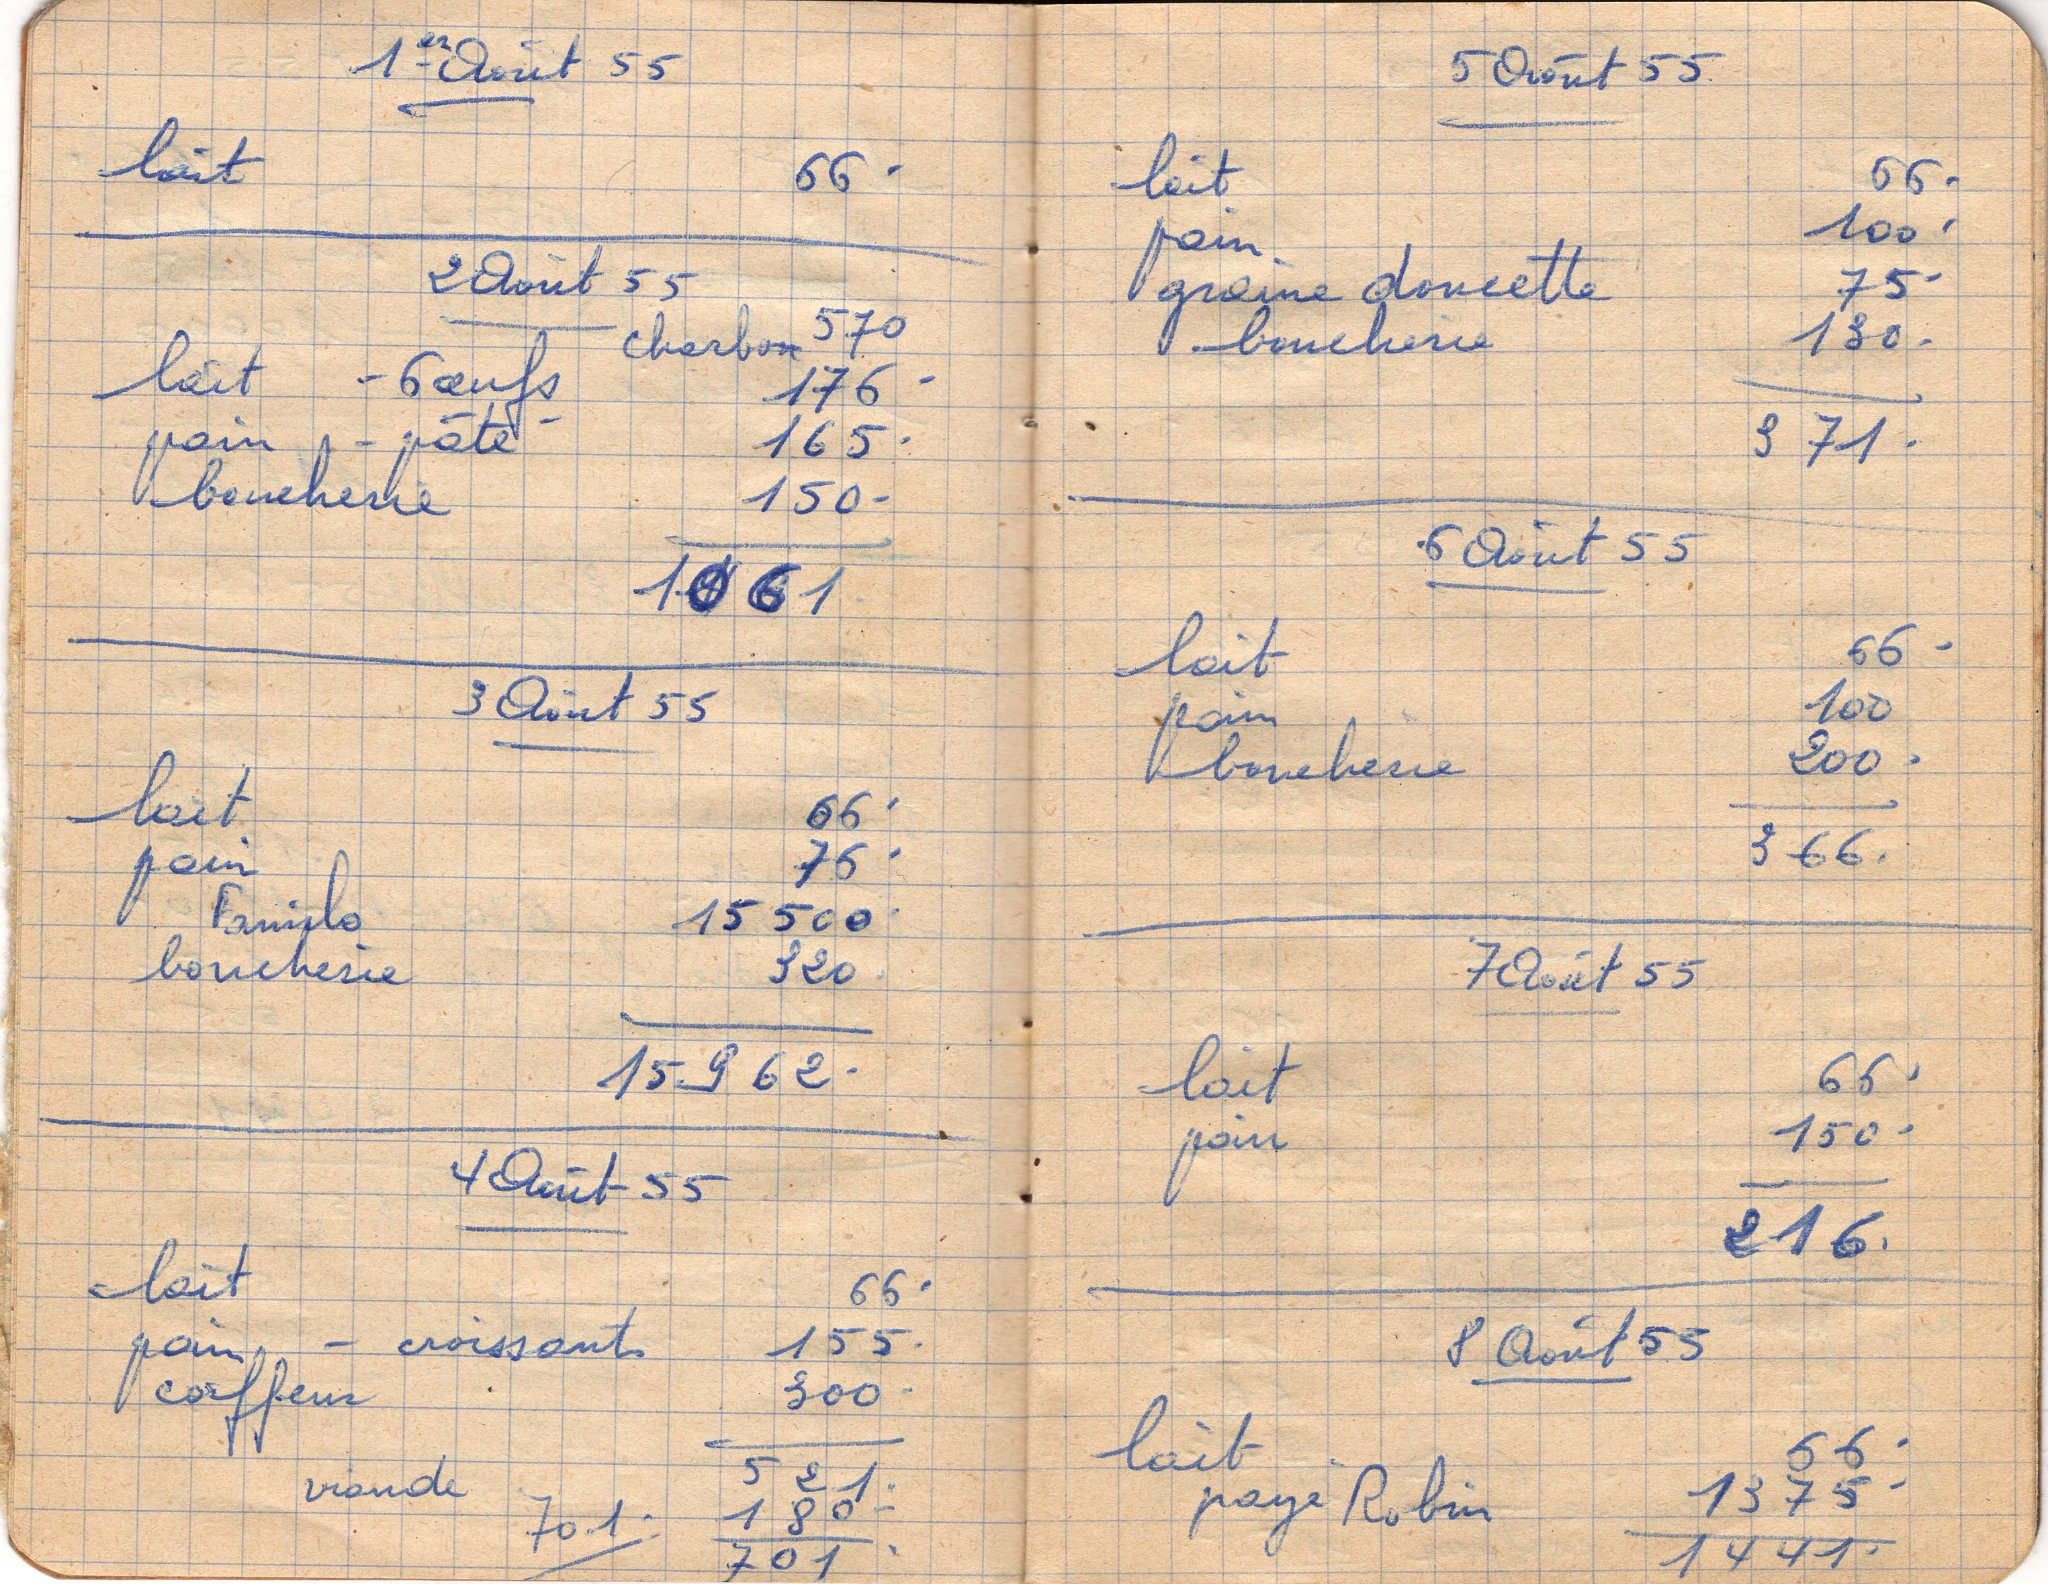 1er Août 55
lait 66.
2 Août 55
charbon 570
lait - 6 œufs 176 -
pain - pâté - 165.
boucherie 150 -
1061.
3 Août 55
lait 66.
pain 76.
15500.
boucherie 320.
15.962.
4 Août 55
lait 66.
pain - croissants 155.
coiffeur 300.
521.
viande 180 -
701. 701.
5 Août 55
lait 66.
pain 100.
graine doucette 75.
boucherie 130.
371.
6 Août 55
lait 66 -
pain 100
boucherie 200.
366.
7 Août 55
lait 66.
pain 150.
216.
8 Août 55
lait 66.
payé Robin 1375 -
1441.